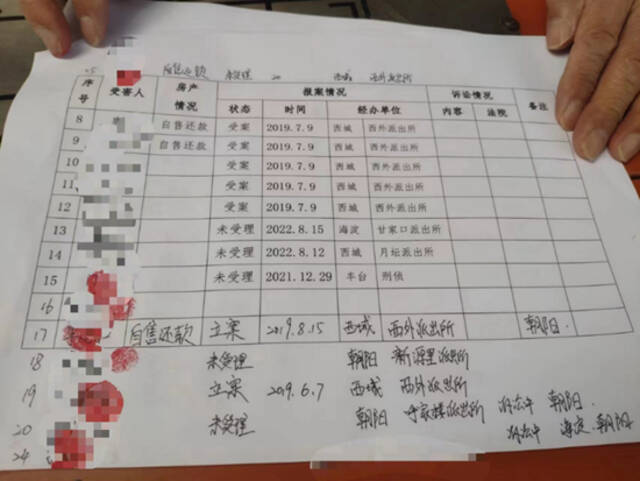 自售还款 未受理 20 西城 西外派出所
序号 受害人 房产情况 报案情况 诉讼情况 备注
状态 时间 经办单位 内容 法院
8 自售还款 受案 2019.7.9 西城 西外派出所
9 自售还款 受案 2019.7.9 西城 西外派出所
10 受案 2019.7.9 西城 西外派出所
11 受案 2019.7.9 西城 西外派出所
12 受案 2019.7.9 西城 西外派出所
13 未受理 2022.8.15 海淀 甘家口派出所
14 未受理 2022.8.12 西城 月坛派出所
15 未受理 2021.12.29 丰台 刑侦
16
17 自售还款 立案 2019.8.15 西城 西外派出所 朝阳.
18 未受理 朝阳 新源里派出所
19 立案 2019.6.7 西城 西外派出所
20 未受理 朝阳 呼家楼派出所 诉讼中 朝阳.
24 诉讼中 海淀.朝阳